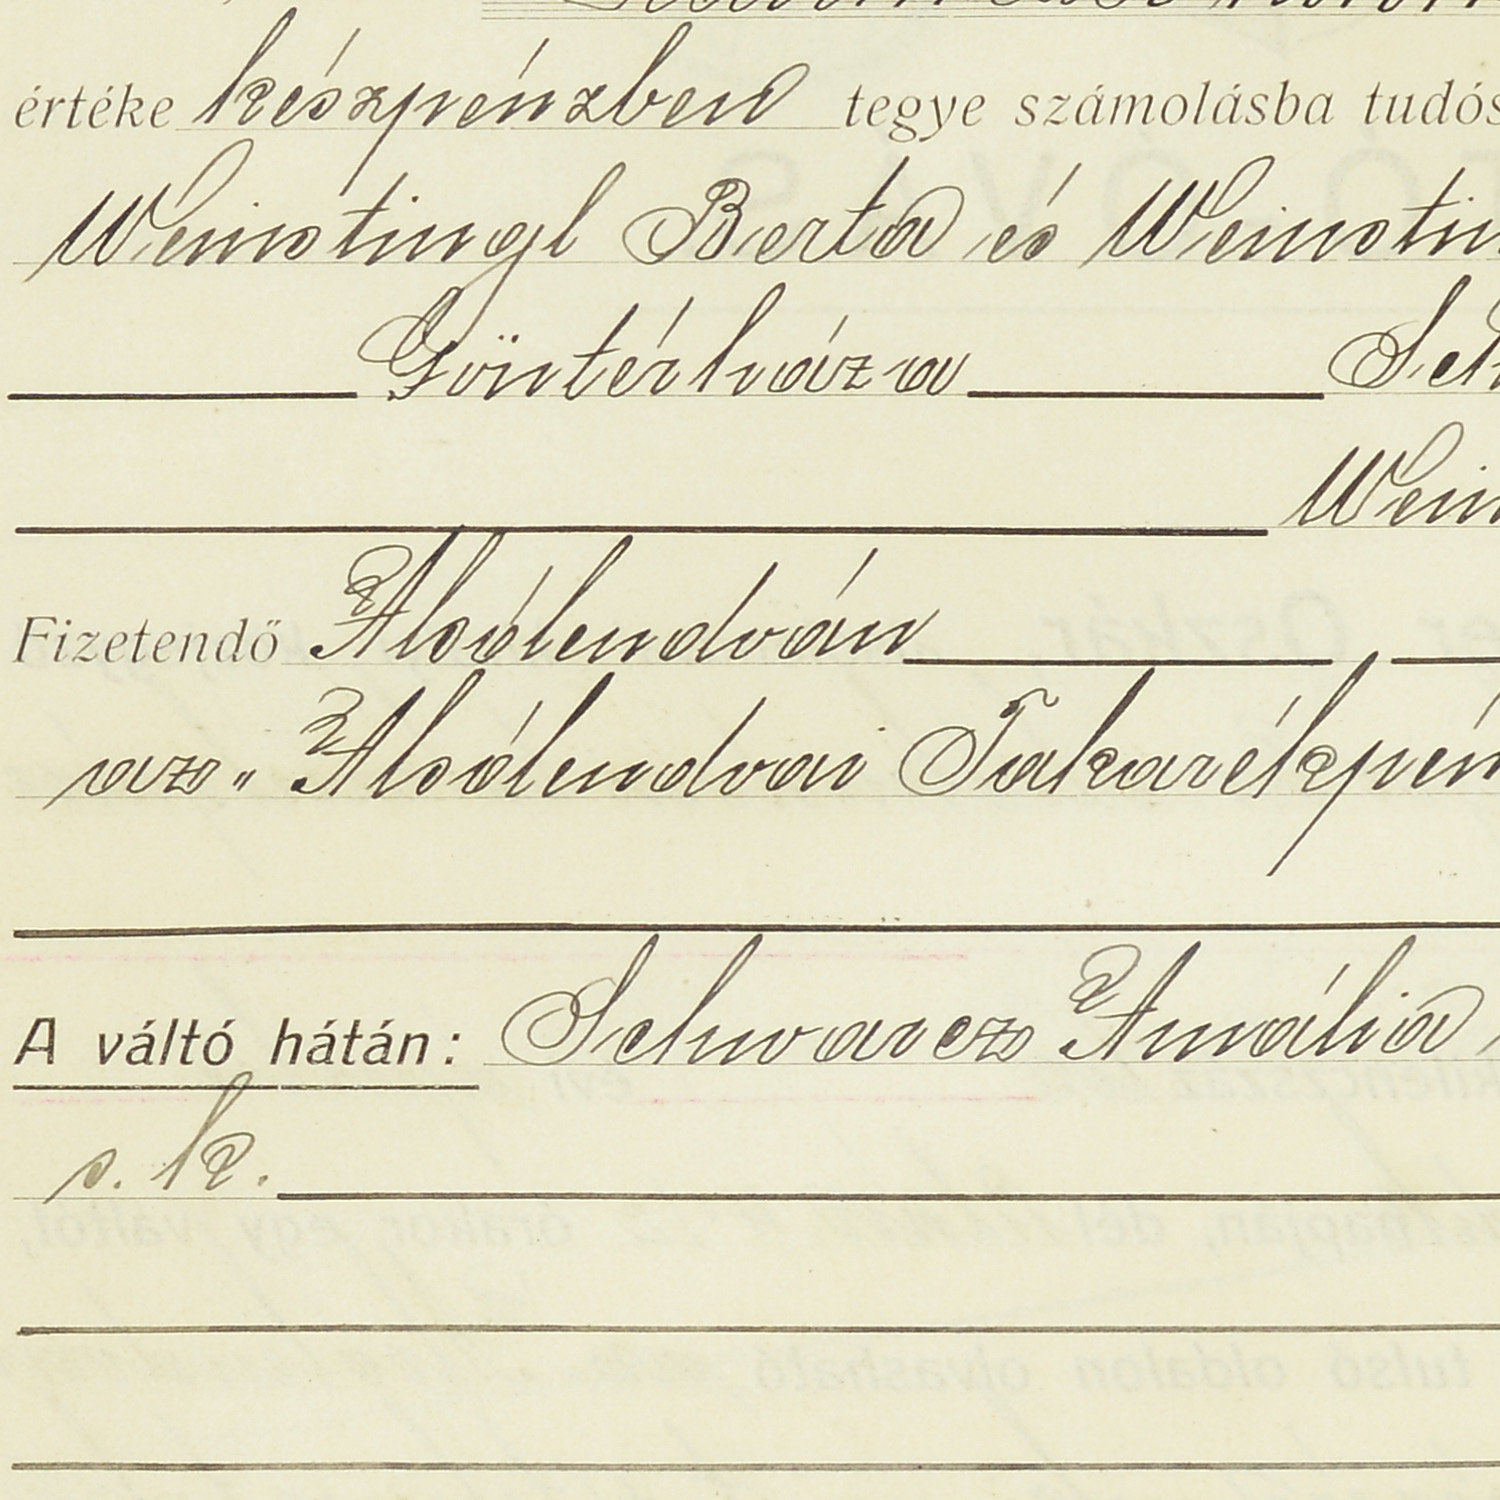 értéke készpénzben tegye számolásba tudós
Weinstingl Berta és Weinstin
Göntérháza Sch
Wein
Fizetendő Alsólendván
az „Alsólendvai Takarékpén
A váltó hátán: Schwarcz Amália
s. k.